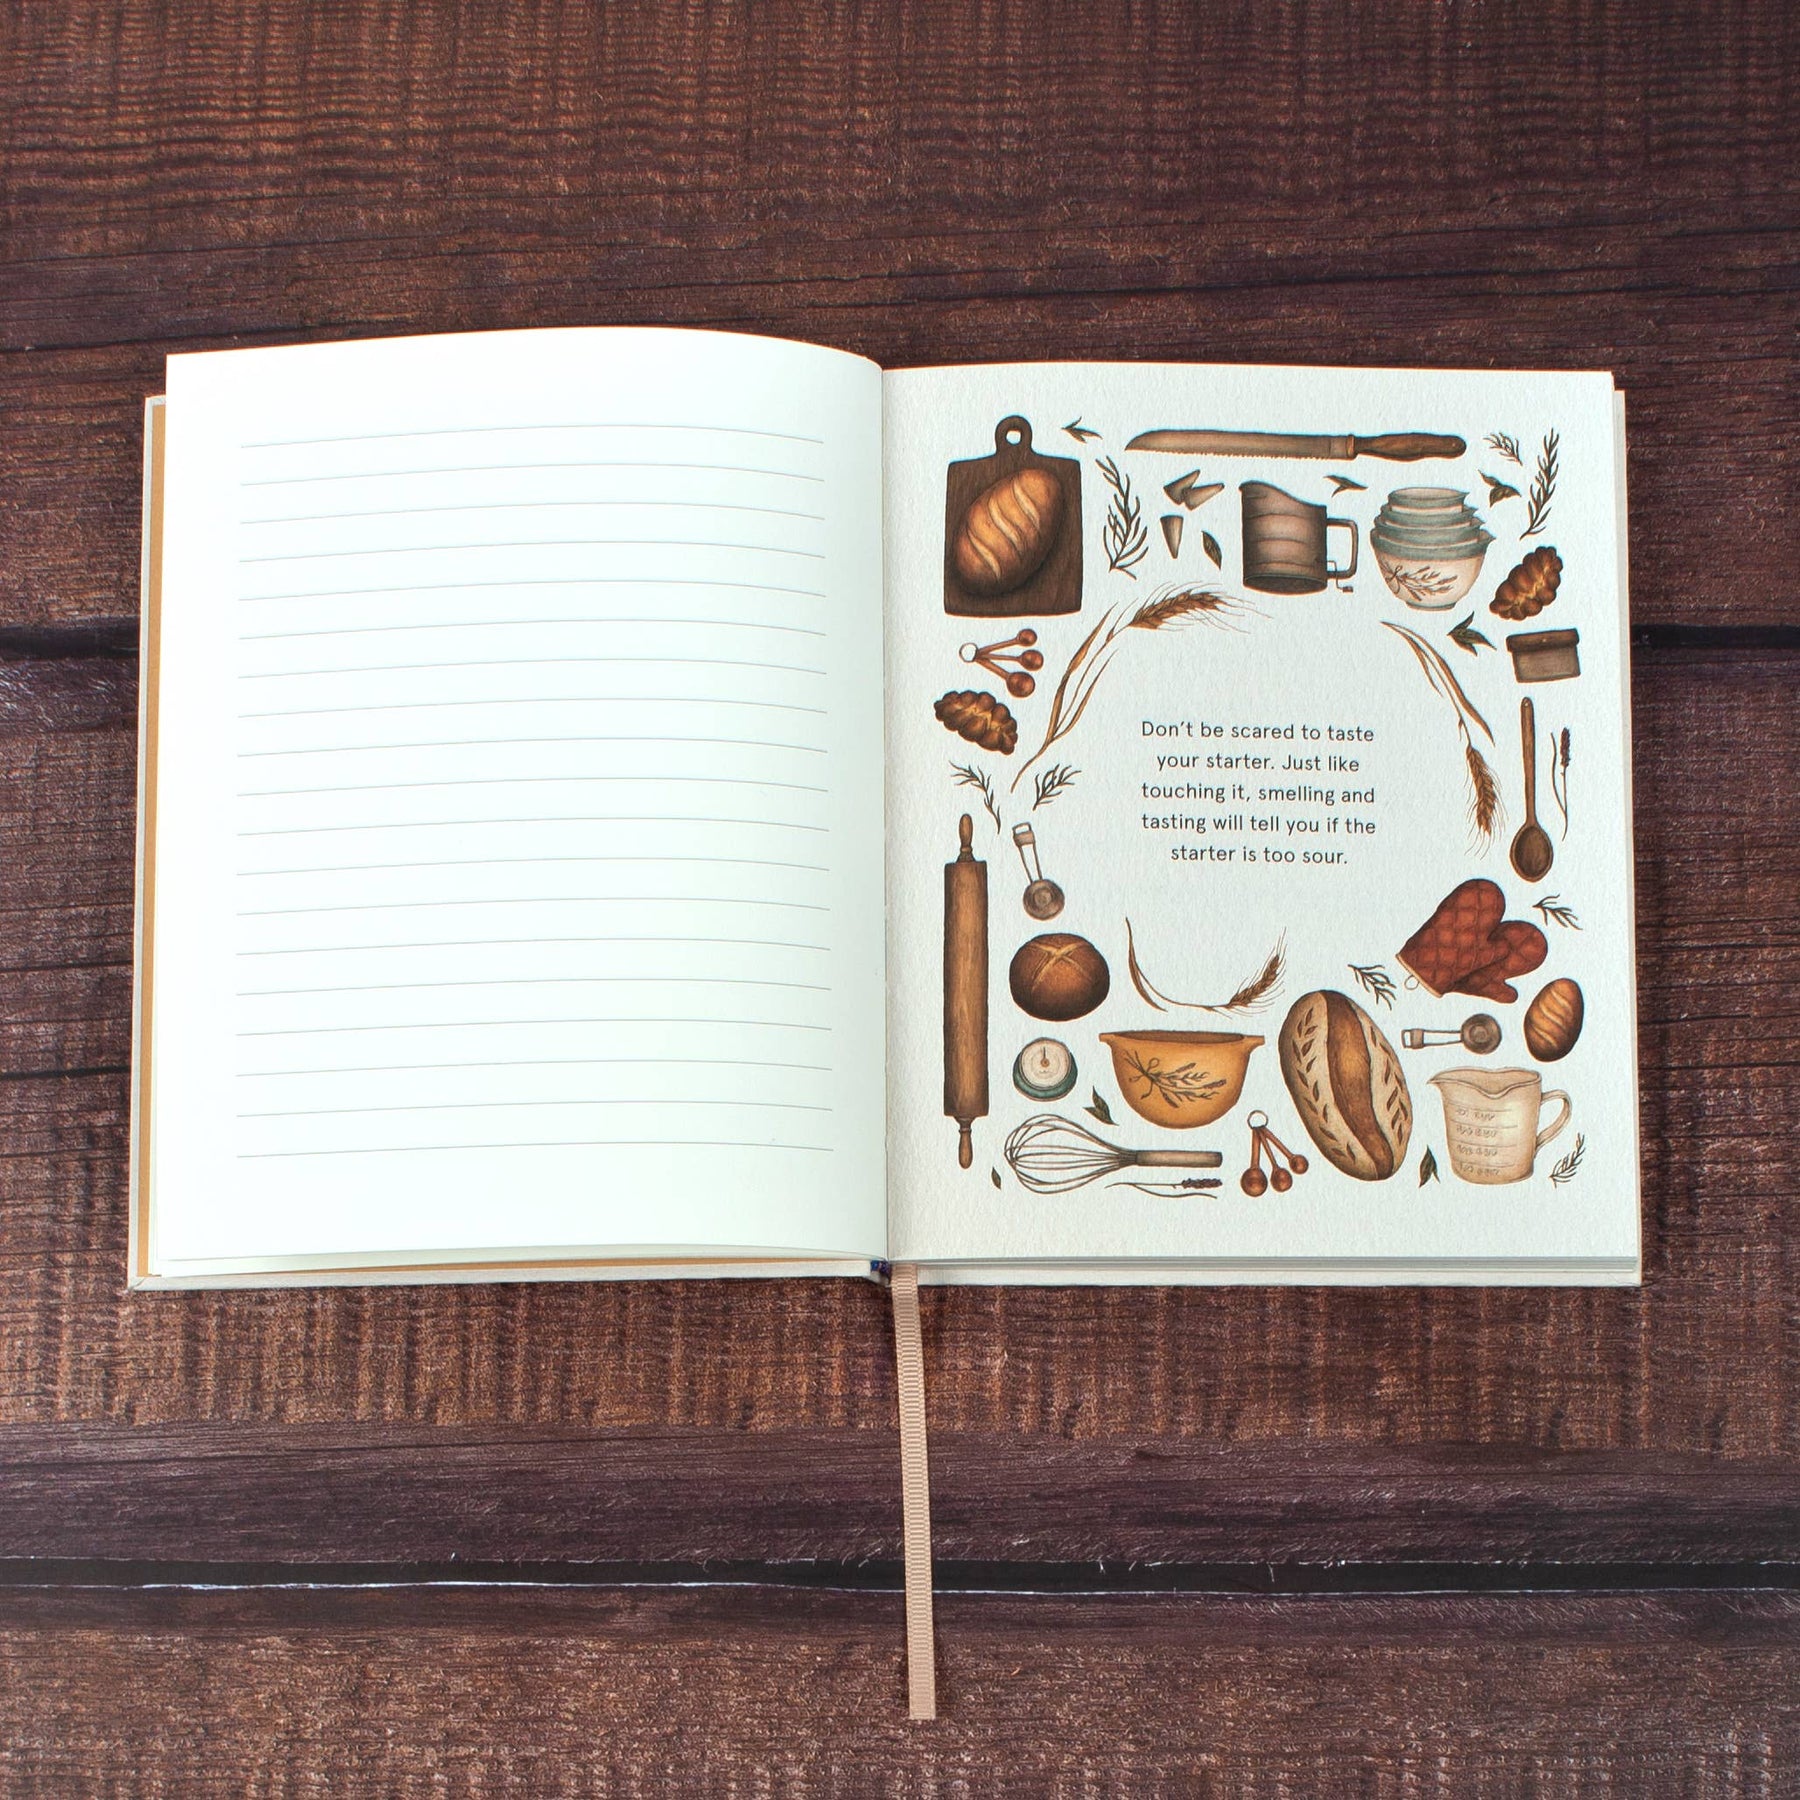 Don't be scared to taste
your starter. Just like
touching it, smelling and
tasting will tell you if the
starter is too sour.